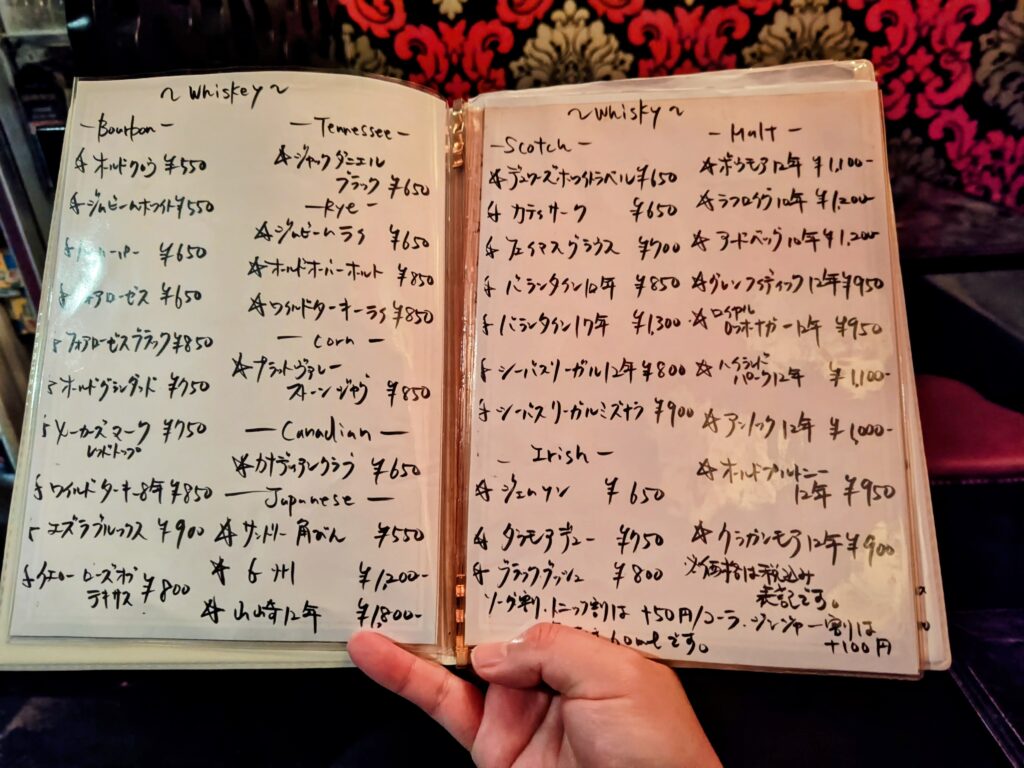 ～Whiskey～
－Bourbon－
☆オールドクロウ ¥550
☆ジムビームホワイト ¥550
☆ ¥650
☆フォアローゼス ¥650
☆フォアローゼスブラック ¥850
☆オールドグランダッド ¥750
☆メーカーズマーク ¥750
レッドトップ
☆ワイルドターキー8年 ¥850
☆エズラブルックス ¥900
☆イエローローズオブ
テキサス ¥800
－Tennessee－
☆ジャックダニエル
ブラック ¥650
－Rye－
☆ジムビームライ ¥650
☆オールドオーバーホルト ¥850
☆ワイルドターキーライ ¥850
－Corn－
☆プラットヴァレー
ストーンジャグ ¥850
－Canadian－
☆カナディアンクラブ ¥650
－Japanese－
☆サントリー角びん ¥550
☆六州 ¥1,200-
☆山崎12年 ¥1,800-
～Whisky～
－Scotch－
☆デュワーズホワイトラベル ¥650
☆カティサーク ¥650
☆フェイマスグラウス ¥700
☆バランタイン12年 ¥850
☆バランタイン17年 ¥1,300-
☆シーバスリーガル12年 ¥800
☆シーバスリーガルミズナラ ¥900
－Irish－
☆ジェムソン ¥650
☆タラモアデュー ¥750
☆ブラックブッシュ ¥800
－Malt－
☆ボウモア12年 ¥1,100-
☆ラフロイグ10年 ¥1,200-
☆アードベッグ10年 ¥1,200-
☆グレンフィディック12年 ¥950
☆ロイヤル
ロッホナガー12年 ¥950
☆ハイランド
パーク12年 ¥1,100-
☆アンノック12年 ¥1,000-
☆オールドプルトニー
12年 ¥950
☆クラガンモア12年 ¥900
※価格は税込み
表記です。
ソーダ割り、トニック割は +50円/コーラ・ジンジャー割りは
+100円
60mlです。